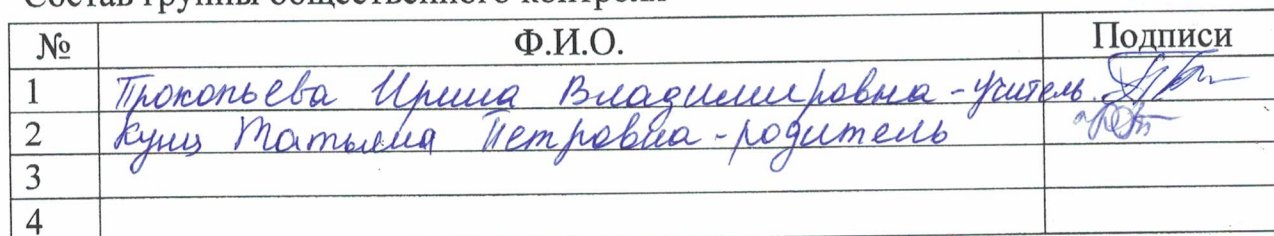 Состав группы общественного контроля
№ Ф.И.О. Подписи
1 Прокопьева Ирина Владимировна - учитель
2 Кунц Татьяна Петровна - родитель
3
4